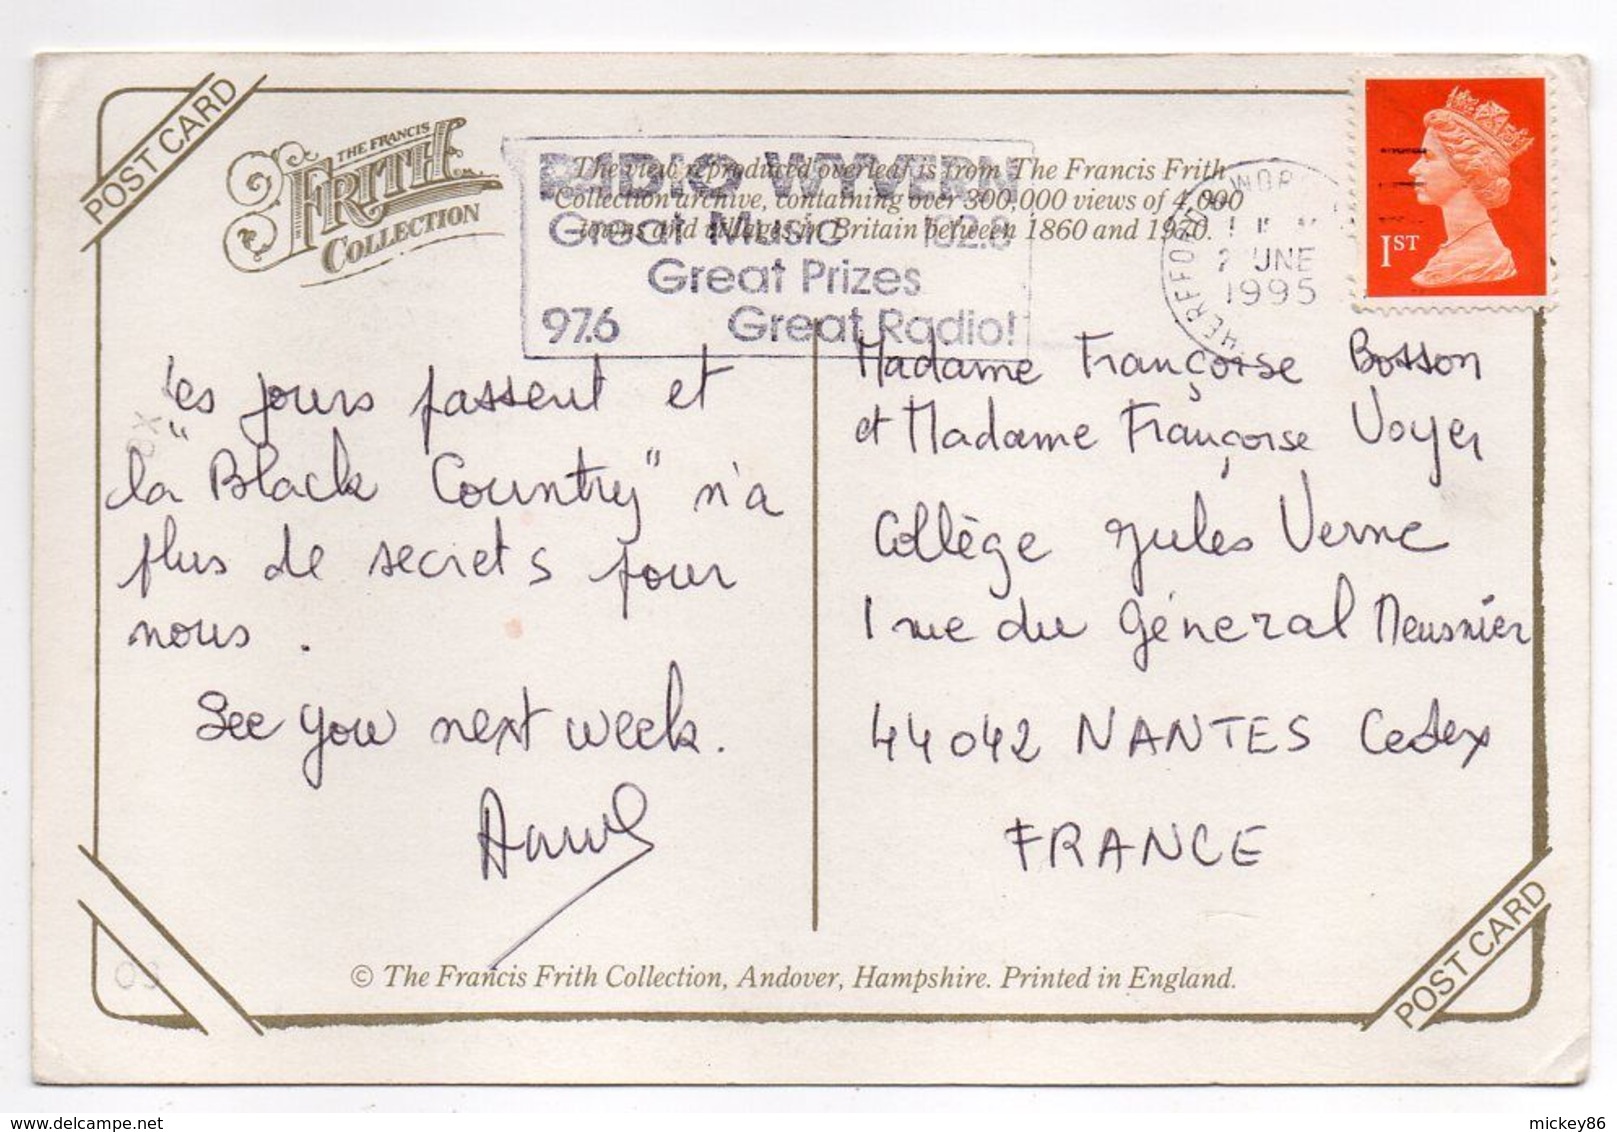 POST CARD
THE FRANCIS
FRITH
COLLECTION
The view reproduced overleaf is from The Francis Frith
Collection archive, containing over 300,000 views of 4,000
towns and villages in Britain between 1860 and 1970.
RADIO WYVERN
Great Music 102.8
Great Prizes
97.6 Great Radio!
2 JUNE
1995
1ST
Les jours passent et
la "Black Country" n'a
plus de secrets pour
nous.
See you next week.
Madame Françoise Bosson
et Madame Françoise Voyer
Collège Jules Verne
1 rue du Général Meusnier
44042 NANTES Cedex
FRANCE
© The Francis Frith Collection, Andover, Hampshire. Printed in England.
POST CARD
mickey86